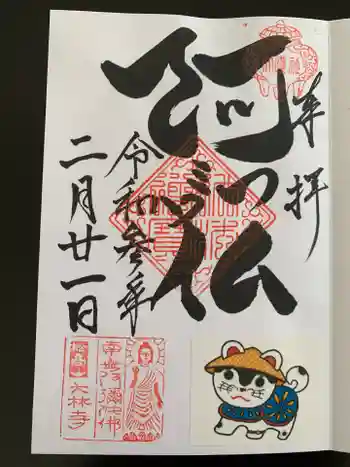 奉拝
阿みだ仏
令和参年
二月廿一日
南無阿彌陀佛
大林寺